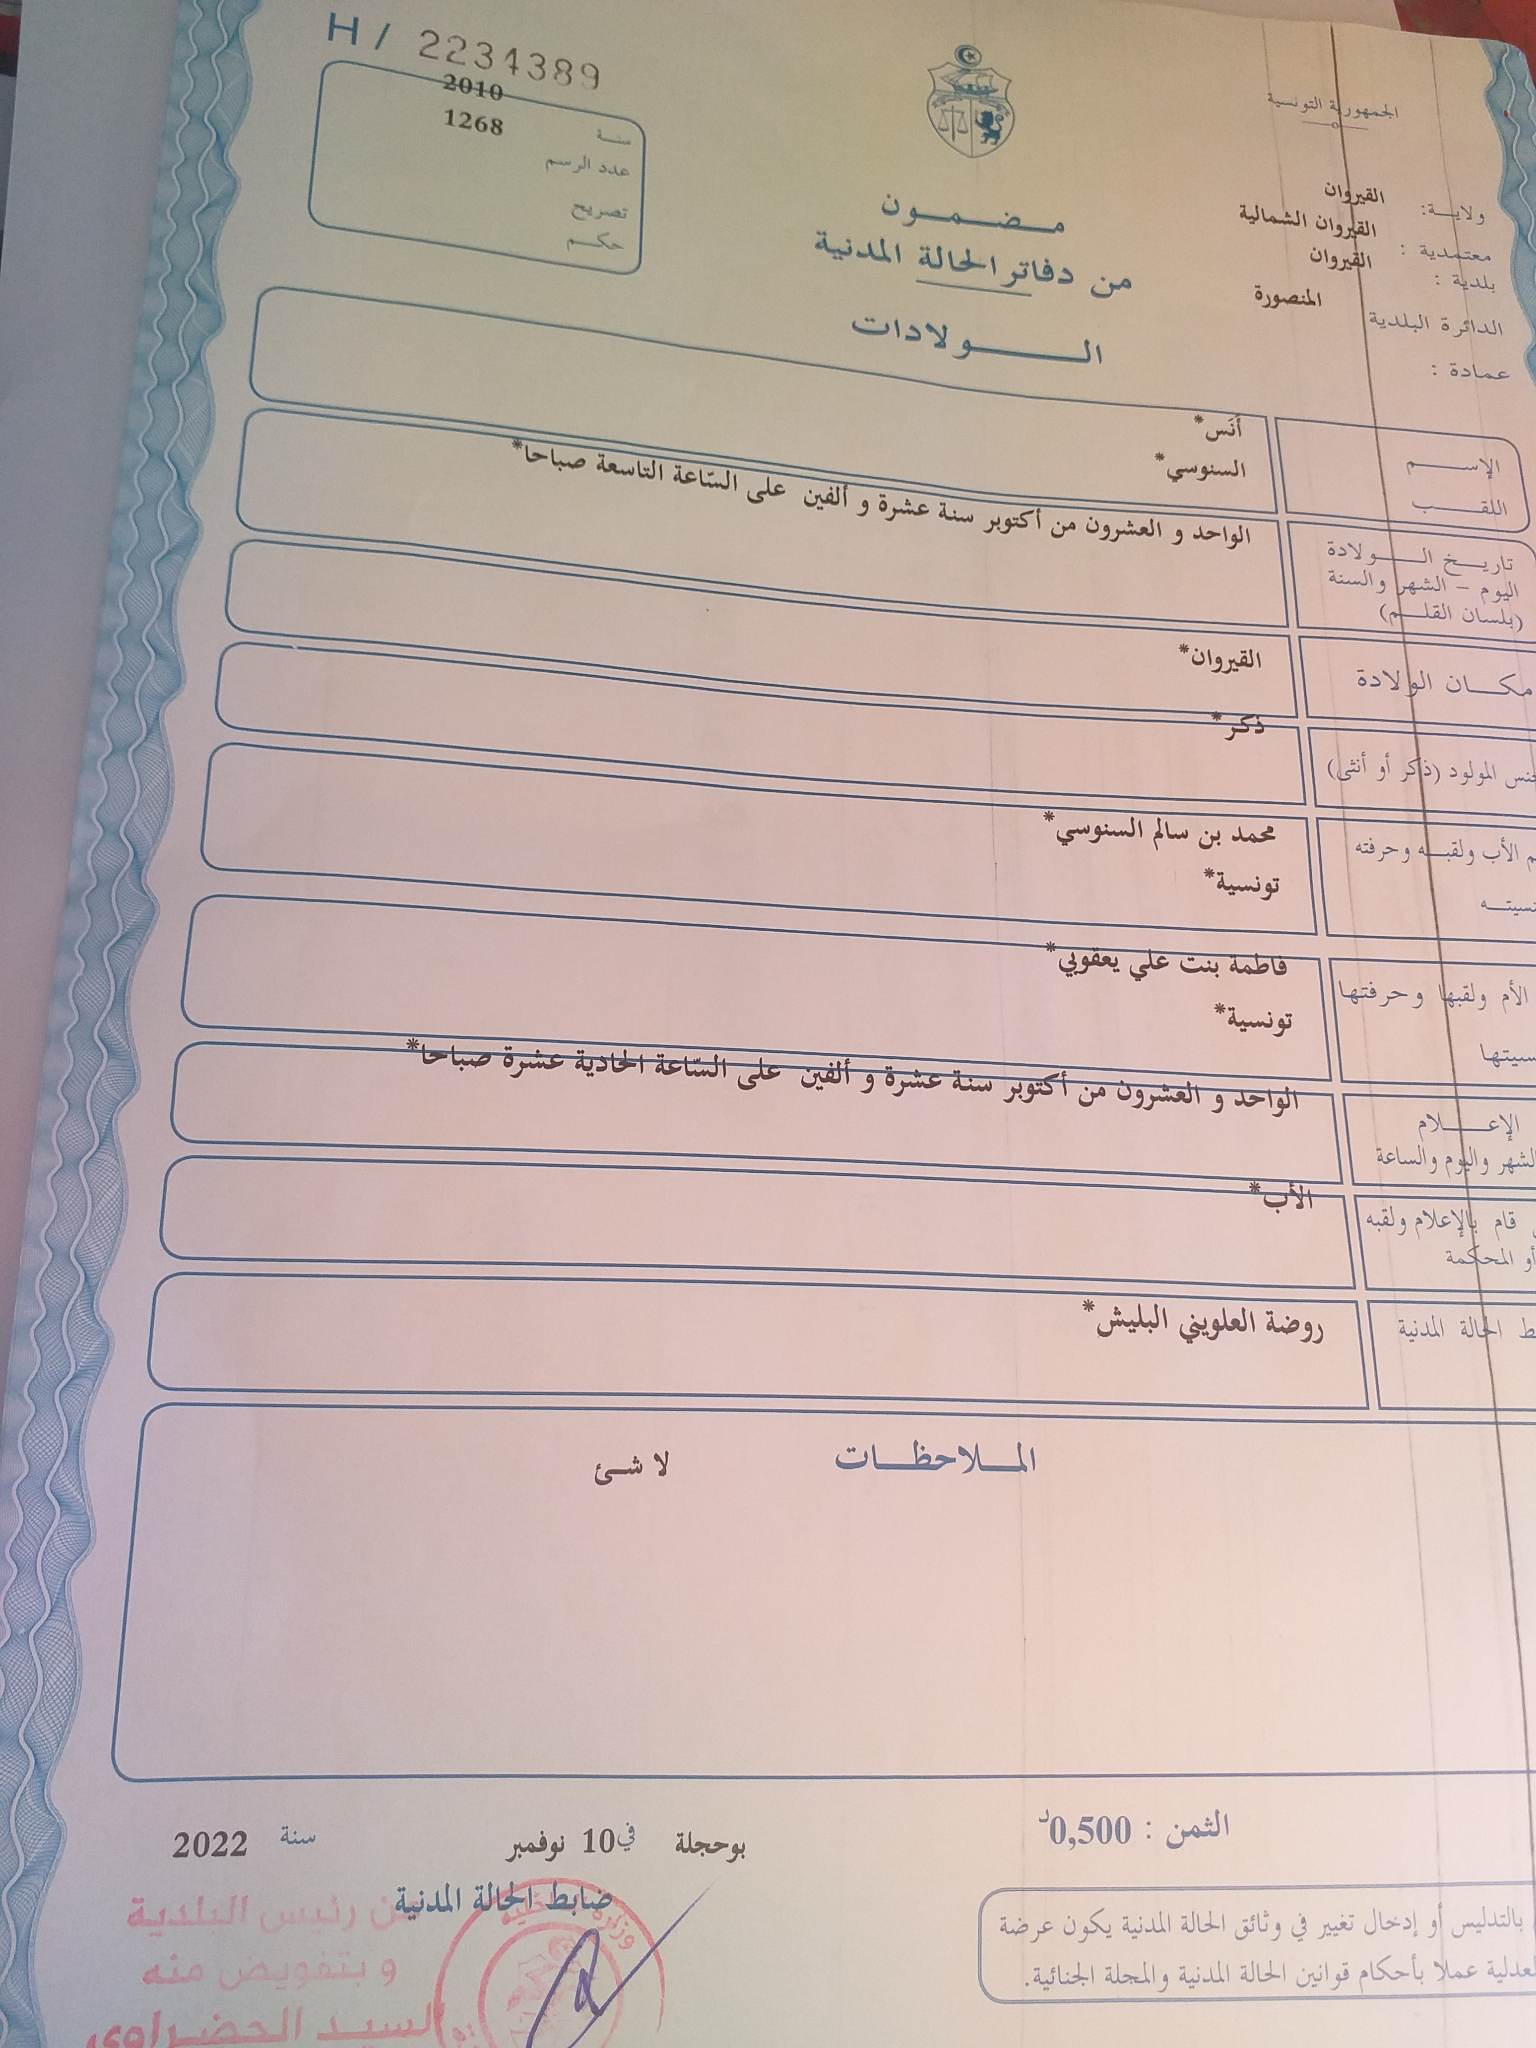 H / 2234389
الجمهورية التونسية
2010
سنة
1268
عدد الرسم
تصريح
حكم
ولاية: القيروان
معتمدية : القيروان الشمالية
بلدية : القيروان
الدائرة البلدية المنصورة
عمادة :
مضمون
من دفاتر الحالة المدنية
الولادات
الإسم أنَس*
اللقب السنوسي*
تاريخ الولادة
اليوم - الشهر والسنة
(بلسان القلم)
الواحد و العشرون من أكتوبر سنة عشرة و ألفين على السّاعة التاسعة صباحا*
مكان الولادة القيروان*
جنس المولود (ذكر أو أنثى) ذكر*
الأب ولقبه وحرفته محمد بن سالم السنوسي*
تونسية*
الأم ولقبها وحرفتها فاطمة بنت علي يعقوبي*
تونسية*
الإعلام
الشهر واليوم والساعة
الواحد و العشرون من أكتوبر سنة عشرة و ألفين على السّاعة الحادية عشرة صباحا*
قام بالإعلام ولقبه
أو المحكمة
الأب*
الحالة المدنية روضة العلويني البليش*
الملاحظات لا شئ
الثمن : 0,500د
بوحجلة في 10 نوفمبر سنة 2022
ضابط الحالة المدنية
عن رئيس البلدية
و بتفويض منه
السيد الحضراوي
وزارة
بالتدليس أو إدخال تغيير في وثائق الحالة المدنية يكون عرضة
عملا بأحكام قوانين الحالة المدنية والمجلة الجنائية.